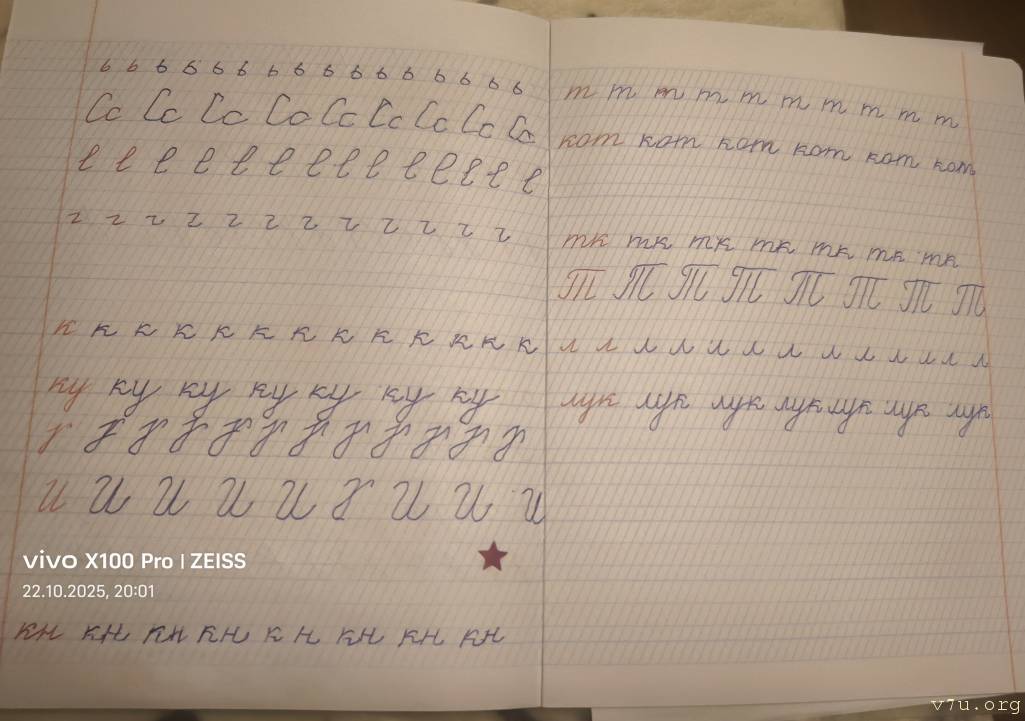 ь ь ь ь ь ь ь ь ь ь ь ь ь ь ь ь
Сс Сс Сс Сс Сс Сс Сс Сс Сс
г г г г г г г г г г г г
к к к к к к к к к к к к к
ку ку ку ку ку ку ку
И И И И И И И И
vivo X100 Pro | ZEISS
22.10.2025, 20:01
кн кн кн кн кн кн кн кн
т т т т т т т т т т
кот кот кот кот кот кот
тк тк тк тк тк тк тк
Т Т Т Т Т Т Т Т
л л л л л л л л л л л л
лук лук лук лук лук лук лук
v7u.org